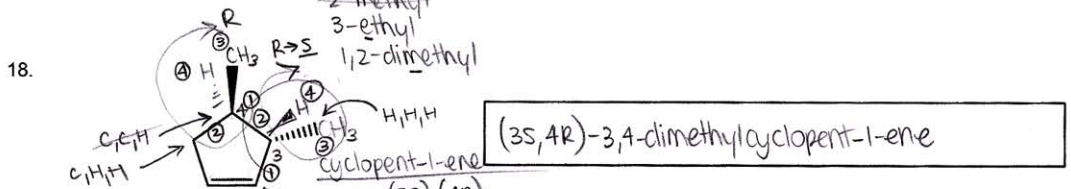 3-ethyl
1,2-dimethyl
18.
R
③
CH₃
R→S
④ H
① ④
② H
CH₃
③
H,H,H
4
②
C,C,H
C,H,H
3
①
cyclopent-1-ene
(3S,4R)-3,4-dimethylcyclopent-1-ene